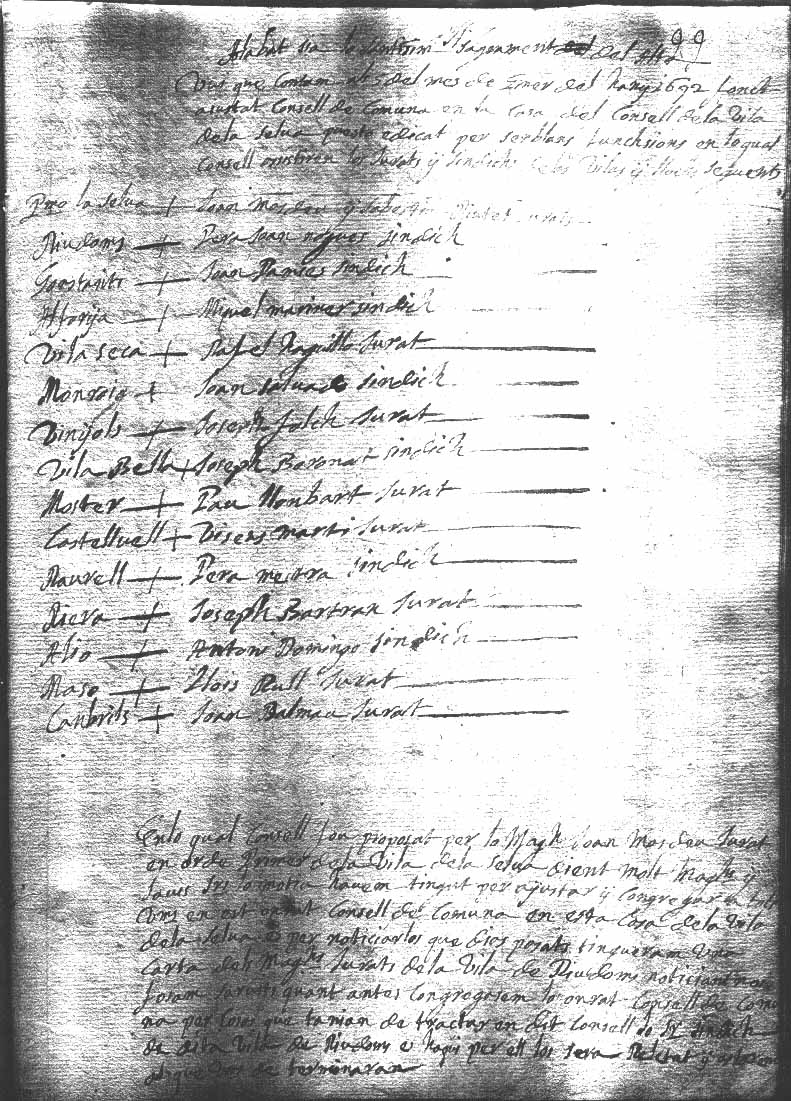 Alabat sia lo santissim Sagrament del Altar 99
Vuy que Contam als del mes de Janer del Any 1692 Fonch
ajustat Consell de Comuna en la Casa del Consell de la Vila
dela selua puesto edicat per semblans funchsions en lo qual
Consell assistiren los Jurats y sindichs deles Viles y llochs seguents
Pmo la selua + Joan mos deu y Jurats
Riudoms + Pera Joan nogues sindich
Costanti + Joan Pamies sindich
Alforja + Miquel mariner sindich
Vila seca + Rafel Jurat
Monroig + Joan saluado sindich
Vinyols + Joseph folch Jurat
Vila Bella + Joseph Baronat sindich
Moster + Pau Monbart Jurat
Castelluell + Visens marti Jurat
Raurell + Pera mestra sindich
Riera + Joseph Bartran Jurat
Alio + Antoni Domingo sindich
Maso + Llois Rull Jurat
Canbrils + Joan Dalmau Jurat
Enlo qual Consell fou proposat per lo Magh Joan Mos deu Jurat
en orde Primer dela Vila dela selua dient molt Maghs y
sauis Srs la motia hauem tingut per ajustar y Congregar a
Vms en est onrat Consell de Comuna en esta Casa dela Vila
dela selua es per noticiarlos que dies passats tingueram Una
Carta dels Maghs Jurats dela Vila de Riudoms noticiantnos
fosam seruits quant antes Congregasem lo onrat Consell de Comu
na per Cosas que tanian de tractar en dit Consell lo Sr sindich
de dita Vila de Riudoms e haqui per ell los sera Reletat y
Vms determinaran